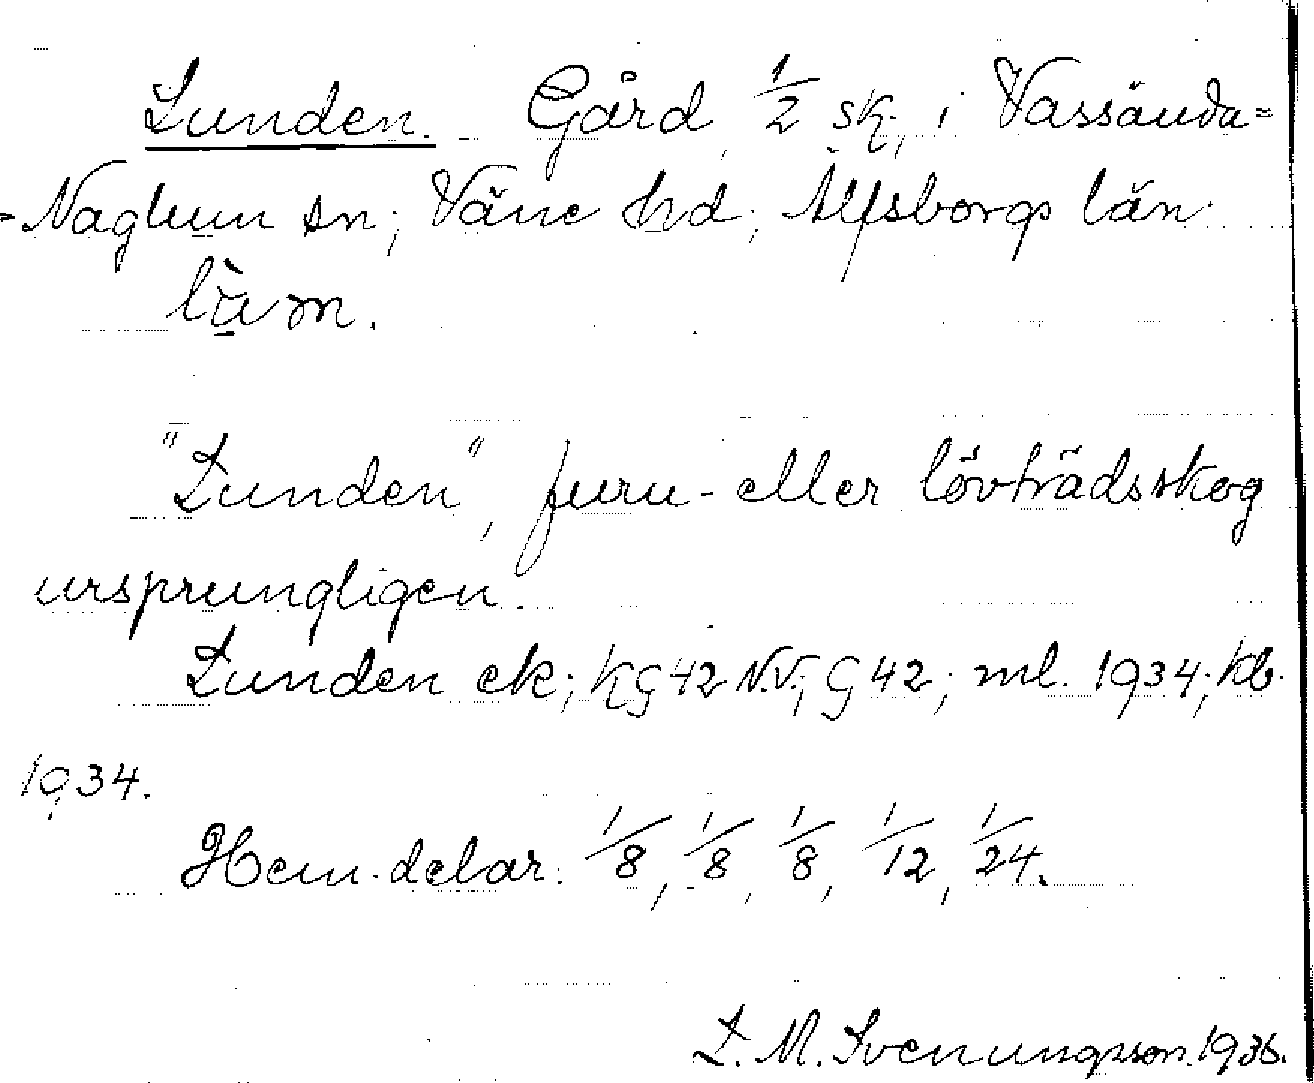 Lunden. Gård, 1/2 sk., i Vassända=
-Naglum sn; Väne hd; Älfsborgs län.
"Lunden", furu- eller lövträdsskog
ursprungligen.
Lunden ek; KG 42 N.V.; G 42; ml. 1934; kb.
1934.
Hem. delar: 1/8, 1/8, 1/8, 1/12, 1/24.
L. M. Svenungsson. 1936.